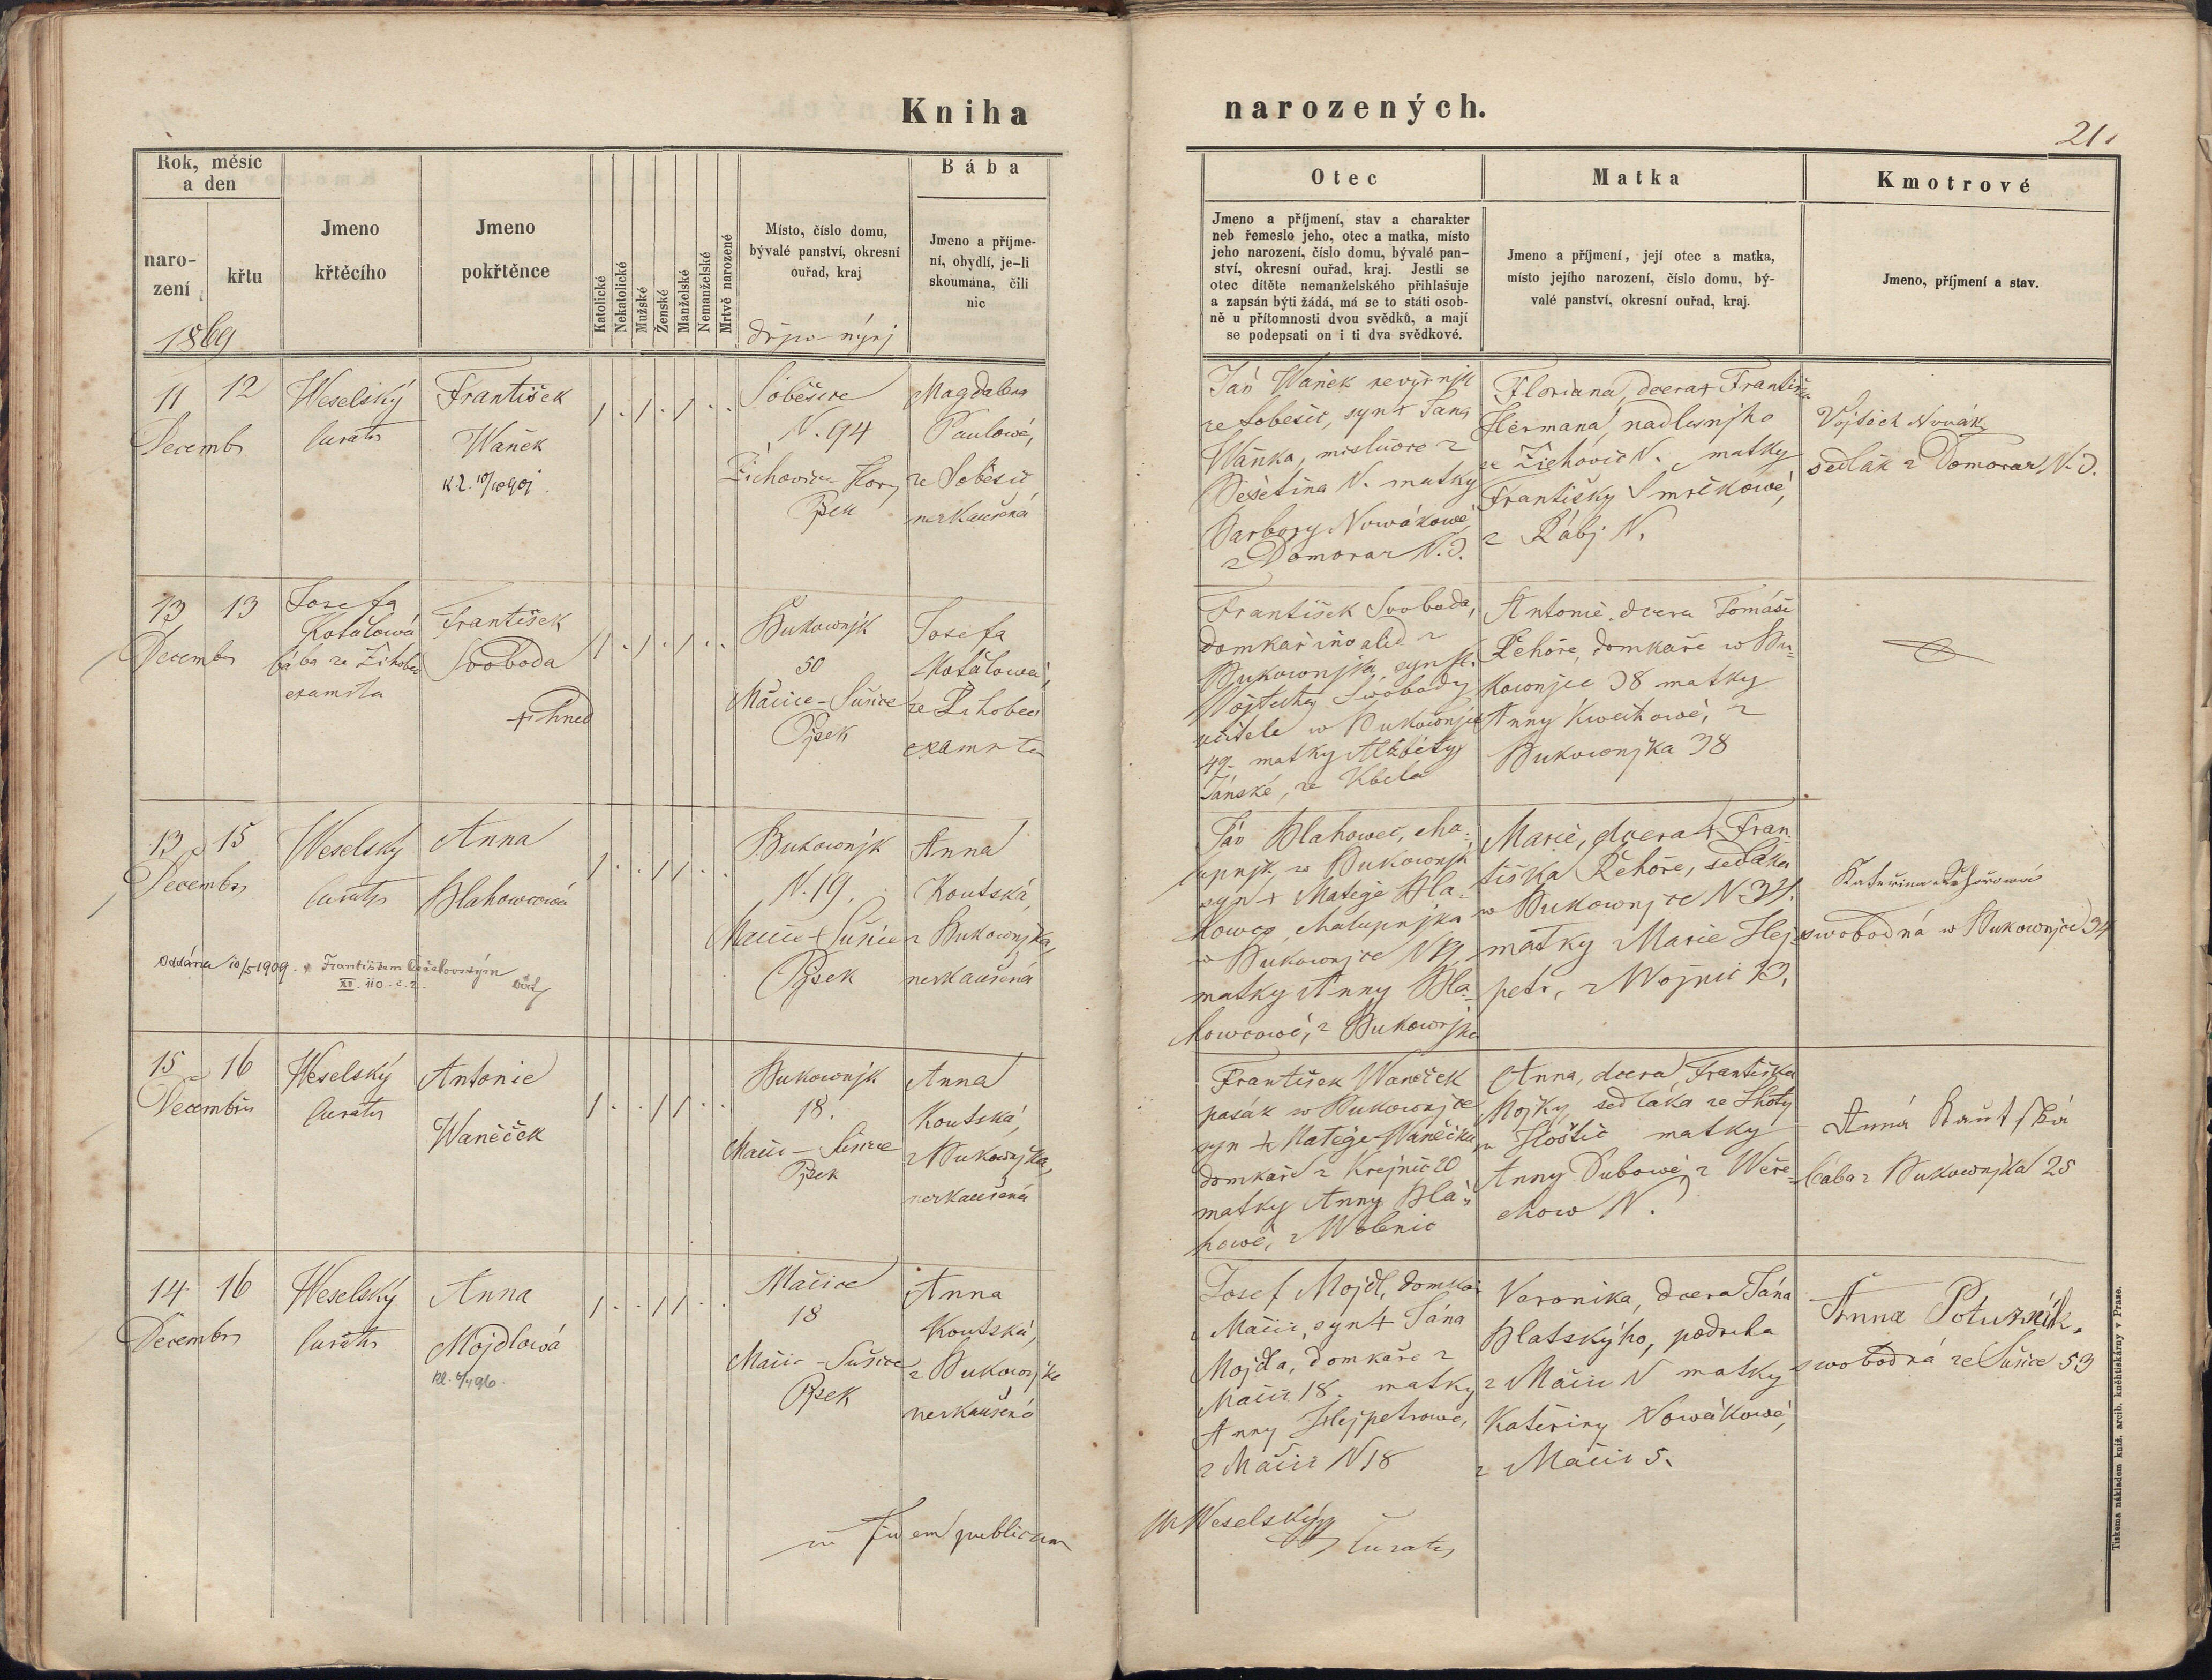 Kniha
narozených.
21.
Rok, měsíc
a den
naro-
zení
křtu
1869
Jmeno
křtěcího
Jmeno
pokřtěnce
Katolické
Nekatolické
Mužské
Ženské
Manželské
Nemanželské
Mrtvě narozené
Místo, číslo domu,
bývalé panství, okresní
ouřad, kraj
Bába
Jmeno a příjme-
ní, obydlí, je-li
skoumána, čili
nic
Otec
Jmeno a příjmení, stav a charakter
neb řemeslo jeho, otec a matka, místo
jeho narození, číslo domu, bývalé pan-
ství, okresní ouřad, kraj. Jestli se
otec dítěte nemanželského přihlašuje
a zapsán býti žádá, má se to státi osob-
ně u přítomnosti dvou svědků, a mají
se podepsati on i ti dva svědkové.
Matka
Jmeno a příjmení, její otec a matka,
místo jejího narození, číslo domu, bý-
valé panství, okresní ouřad, kraj.
Kmotrové
Jmeno, příjmení a stav.
11 12
Decembr
Weselský
Curatus
František
Waněk
Soběšice
N. 94
Žichovice-Hory
Pjsek
Magdalena
Paulowá,
ze Soběšic
nezkaušená
Jan Waněk
ze Sobešic, syn + Jana
Waňka, z
N. matky
Barbory Nowákowé,
z Domoraz N. 3.
Floriana, dcera + Františka
Heřmana, nadlesnjho
ze Žichovic N. matky
Františky Smrčkowé,
z Rábj N.
Vojtěch Novák
sedlák z Domoraz N. 3.
13 13
Decembr
Josefa
Kotálowá
bába ze Žihobec
examita
František
Svoboda
+ ihned
Bukownjk
50
Máčice-Sušice
Pjsek
Josefa
Kotálowá,
ze Žihobec
František Svoboda,
domkař z
Bukownjka, syn +
Vojtěcha Swobody
učitele w Bukownjce
49. matky Alžběty
Jánské, ze Kbela
Antonie, dcera Tomáše
Řehoře, domkaře w Bu-
kownjce 38 matky
Anny Kwěchowé, z
Bukownjka 38
13 15
Decembr
Weselský
Curatus
Anna
Blahowcowá
Oddána 10/5 1909. s Františkem
XII. 110. č. 2.
Bukownjk
N. 19.
Máčice-Sušice
Pjsek
Anna
Koutská,
z Bukownjka,
nezkaušená
Jan Blahowec, cha-
lupnjk, w Bukownjk
syn + Matěge Bla-
howce, chalupnjka
w Bukownjce N 19,
matky Anny Bla-
howcowé, z Bukownjka
Marie, dcera + Fran-
tiška Řehoře, sedláka
w Bukownjce N 34.
matky Marie Hej-
petr, z Wojnic 13.
Kateřina Řehořowá
swobodná w Bukownjce 34
15 16
Decembris
Weselský
Curatus
Antonie
Waněček
Bukownjk
18.
Máčic-Sušice
Pjsek
Anna
Koutská,
z Bukownjka,
nezkaušená
František Waněček
pasák w Bukownjce
syn + Matěge Waněčka
domkaře z Krejnic 20
matky Anny Blá-
howé, z Wolenic
Anna, dcera Františka
Mojky, sedláka ze Lhoty
u Hoštic matky
Anny Dubowé, z Weře-
chow N.
Anná Kautská
bába z Bukownjka 25
14 16
Decembr
Weselský
Curatus
Anna
Mojdlowá
Máčice
18
Máčic-Sušice
Pjsek
Anna
Koutská,
z Bukownjka
nezkaušená
Josef Mojdl, domkář
z Máčic, syn + Jána
Mojdla, domkaře z
Máčic 18. matky
Anny Hejpetrowé,
z Máčic N 18
Veronika, dcera Jána
Blatského, podruha
z Máčic N matky
Kateřiny Nowákowé,
z Máčic 5.
Anna Potužník,
swobodná ze Sušice 53
in fidem publicam
Weselský
Curatus
Tiskema nákladem kníž. arcib. kněhtiskárny v Praze.